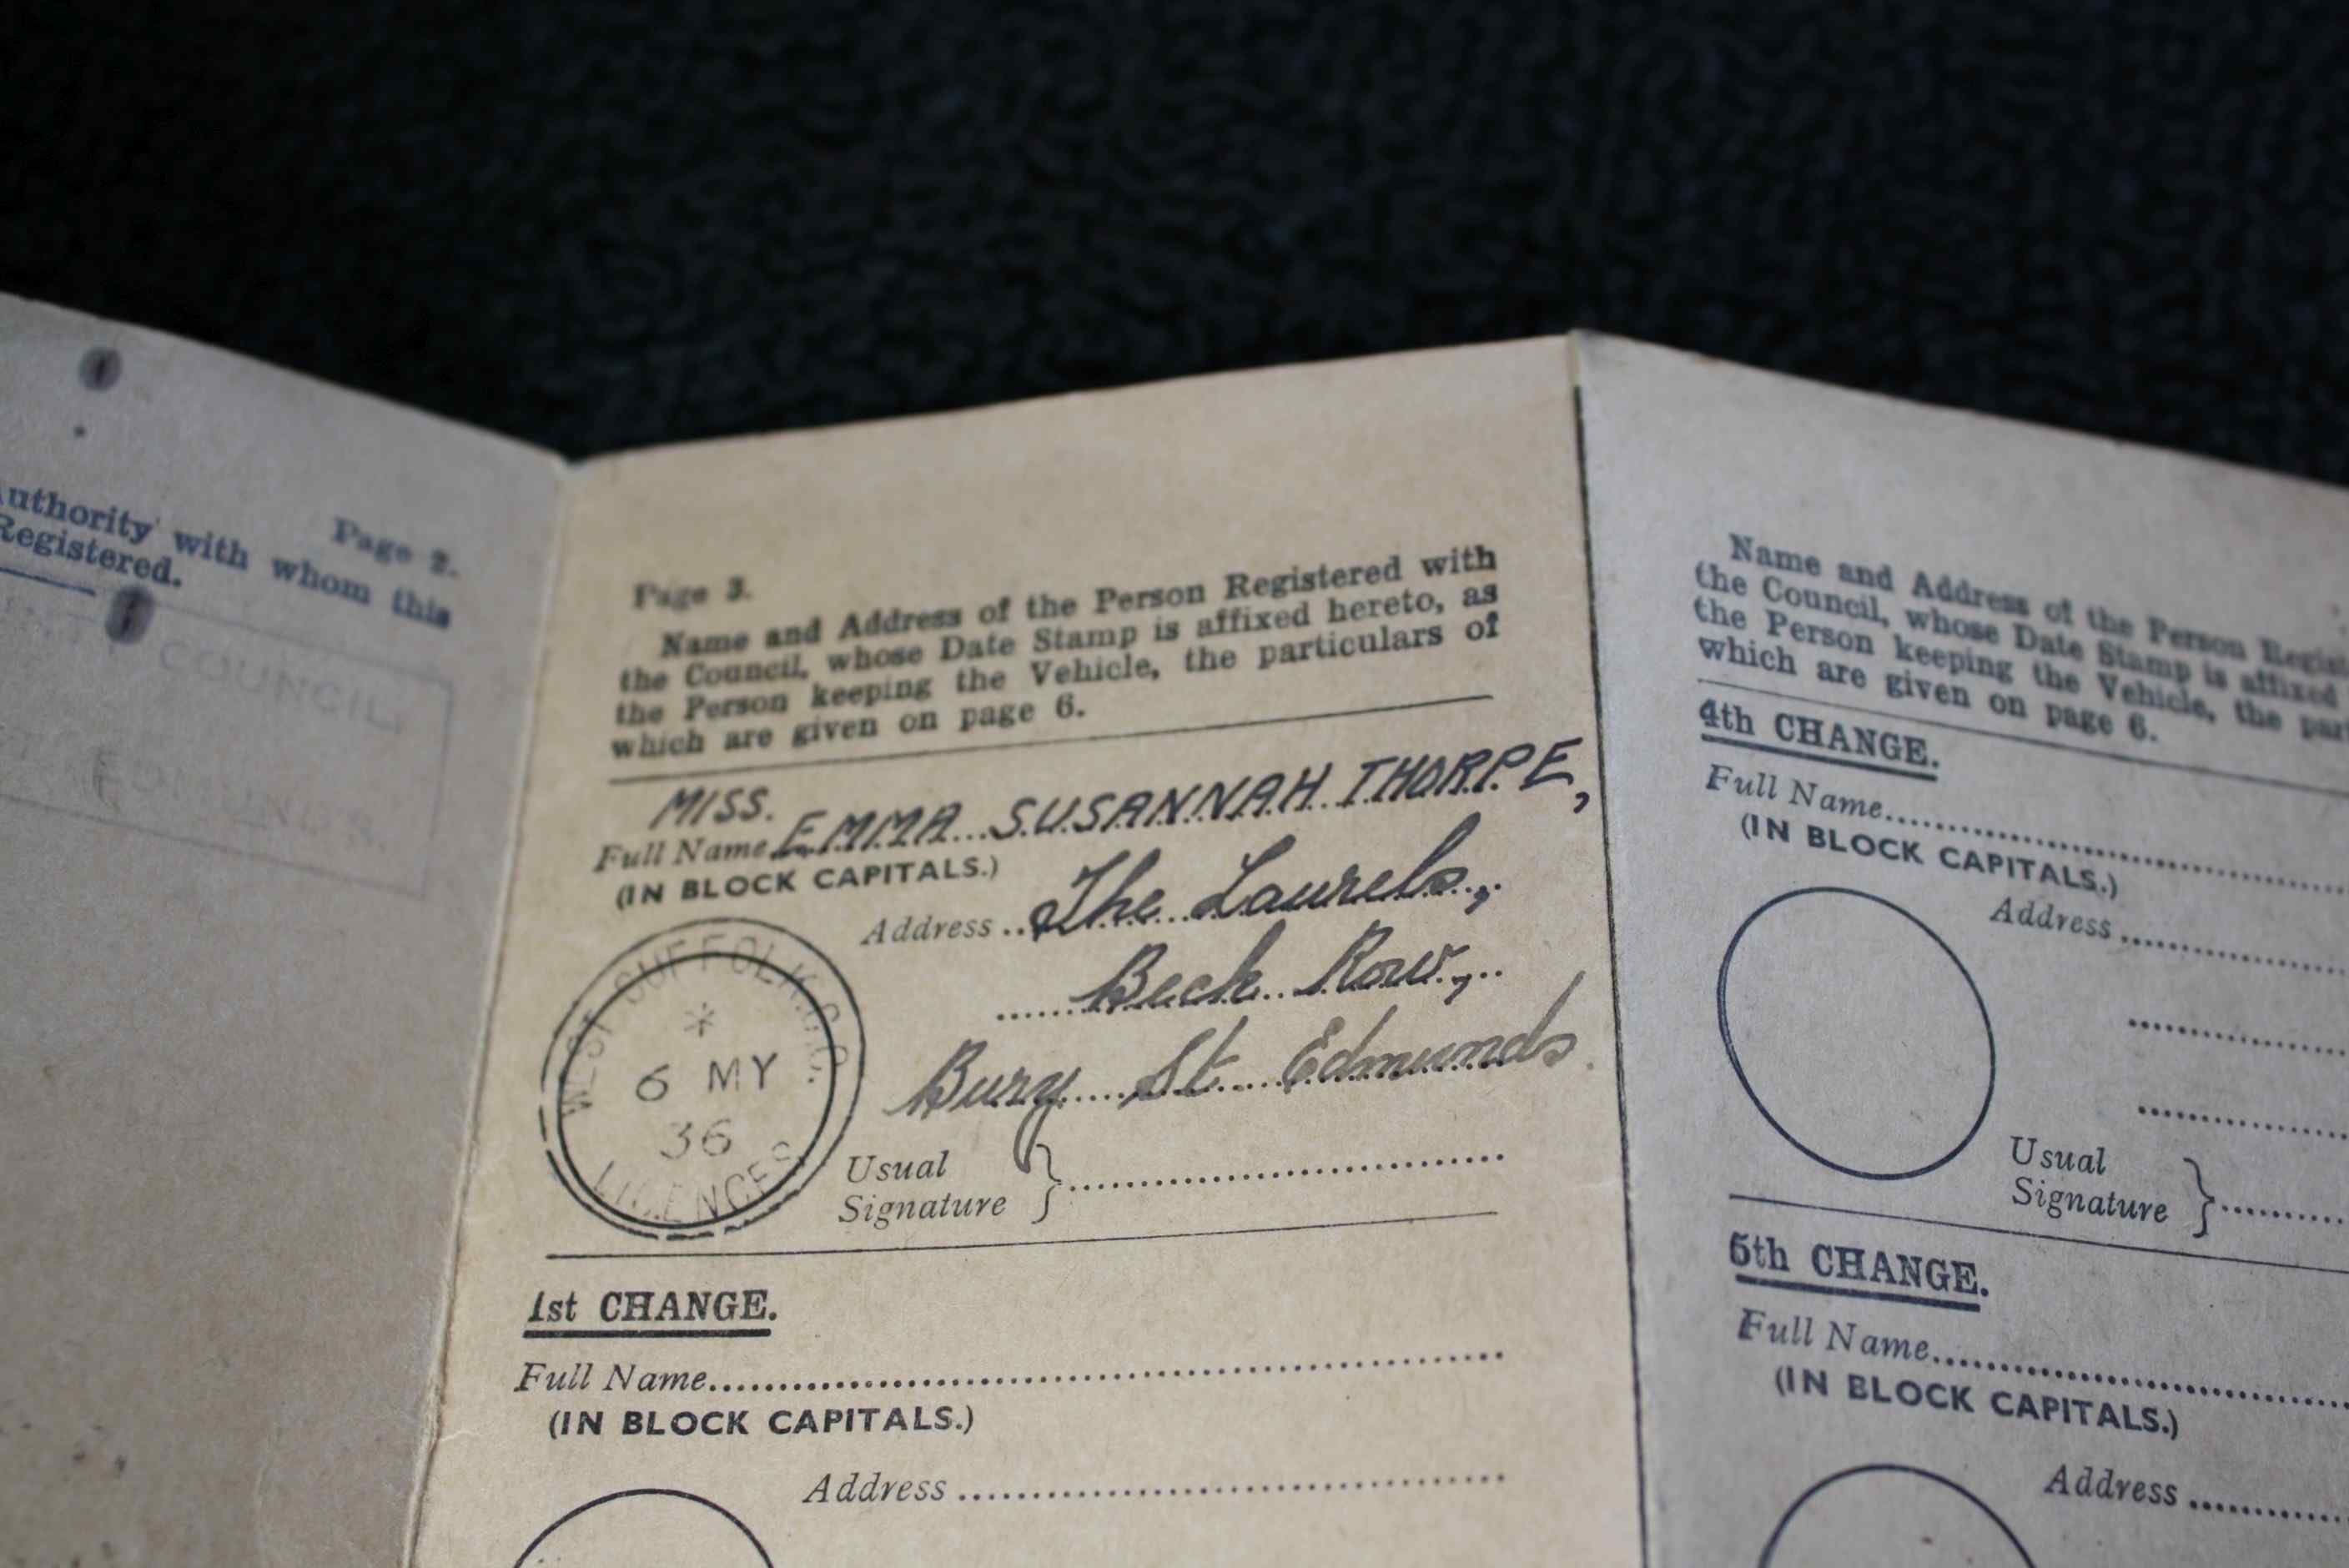 Page 2.
Authority with whom this
Registered.
COUNCIL,
Page 3.
Name and Address of the Person Registered with
the Council, whose Date Stamp is affixed hereto, as
the Person keeping the Vehicle, the particulars of
which are given on page 6.
MISS.
Full Name EMMA SUSANNAH THORPE,
(IN BLOCK CAPITALS.)
Address The Laurels,
Beck Row,
Bury St Edmunds.
WEST SUFFOLK C.C.
*
6 MY
36
LICENCES
Usual
Signature }
1st CHANGE.
Full Name
(IN BLOCK CAPITALS.)
Address
Name and Address of the Person Regis
the Council, whose Date Stamp is affixed
the Person keeping the Vehicle, the par
which are given on page 6.
4th CHANGE.
Full Name
(IN BLOCK CAPITALS.)
Address
Usual
Signature }
5th CHANGE.
Full Name
(IN BLOCK CAPITALS.)
Address